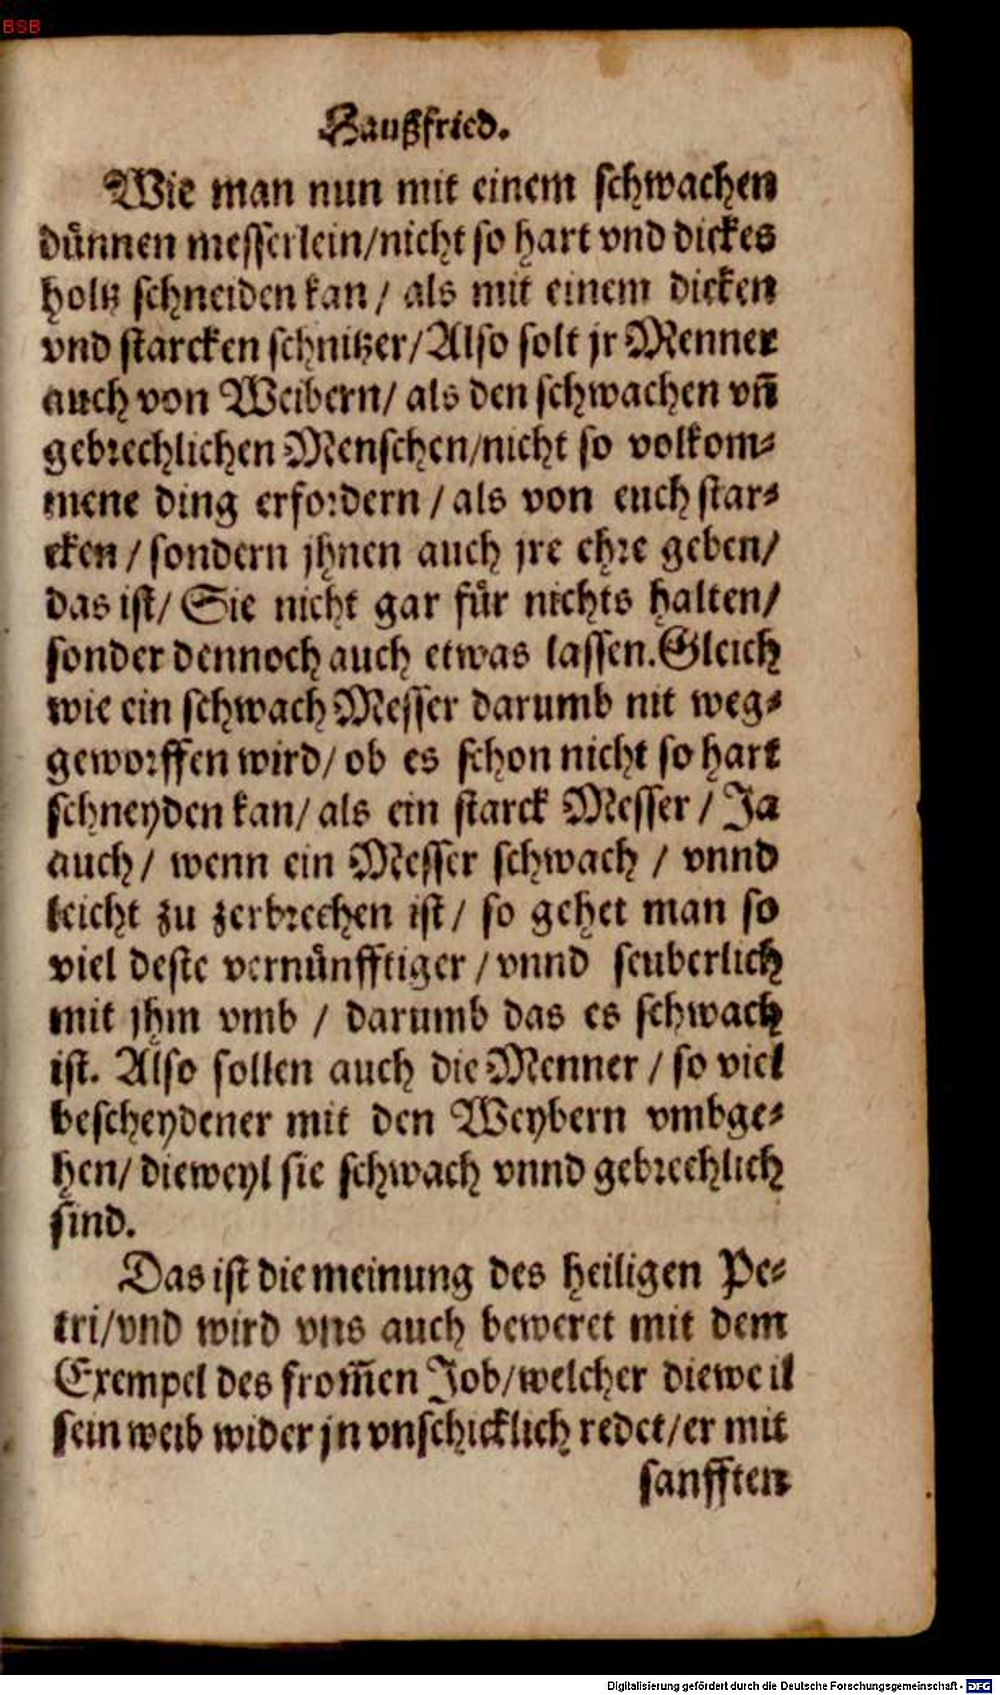 BSB
Haußfried.
Wie man nun mit einem schwachen
dünnen messerlein/nicht so hart vnd dickes
holtz schneiden kan/ als mit einem dicken
vnd starcken schnitzer/Also solt jr Menner
auch von Weibern/ als den schwachen vñ
gebrechlichen Menschen/nicht so volkom⸗
mene ding erfordern / als von euch star⸗
cken / sondern jhnen auch jre ehre geben/
das ist/ Sie nicht gar für nichts halten/
sonder dennoch auch etwas lassen.Gleich
wie ein schwach Messer darumb nit weg⸗
geworffen wird/ ob es schon nicht so hart
schneyden kan/ als ein starck Messer / Ja
auch/ wenn ein Messer schwach / vnnd
leicht zu zerbrechen ist/ so gehet man so
viel deste vernünfftiger /vnnd seuberlich
mit jhm vmb / darumb das es schwach
ist. Also sollen auch die Menner / so viel
bescheydener mit den Weybern vmbge⸗
hen/ dieweyl sie schwach vnnd gebrechlich
sind.
Das ist die meinung des heiligen Pe⸗
tri/vnd wird vns auch beweret mit dem
Exempel des from̃en Job/welcher dieweil
sein weib wider jn vnschicklich redet/er mit
sanfften
Digitalisierung gefördert durch die Deutsche Forschungsgemeinschaft - DFG